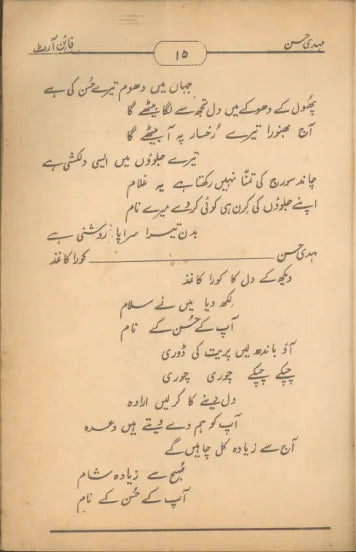 مہدی حسن ۱۵ فائن آرٹ
جہاں میں دھوم تیرے حُسن کی ہے
پھُول کے دھوکے میں دل تجھ سے لگا بیٹھے گا
آج بھنورا تیرے رُخسار پہ آ بیٹھے گا
تیرے جلوؤں میں ایسی دلکشی ہے
چاند سورج کی تمنّا نہیں رکھتا ہے یہ غلام
اپنے جلوؤں کی کرن ہی کوئی کر دے میرے نام
بدن تیرا سراپا روشنی ہے
مہدی حسن کورا کاغذ
دیکھ کے دل کا کورا کاغذ
لکھ دیا میں نے سلام
آپ کے حُسن کے نام
آؤ باندھ لیں پریت کی ڈوری
چپکے چپکے چوری چوری
دل دینے کا کر لیں ارادہ
آپ کو ہم دے دیتے ہیں وعدہ
آج سے زیادہ کل چاہیں گے
صُبح سے زیادہ شام
آپ کے حُسن کے نام